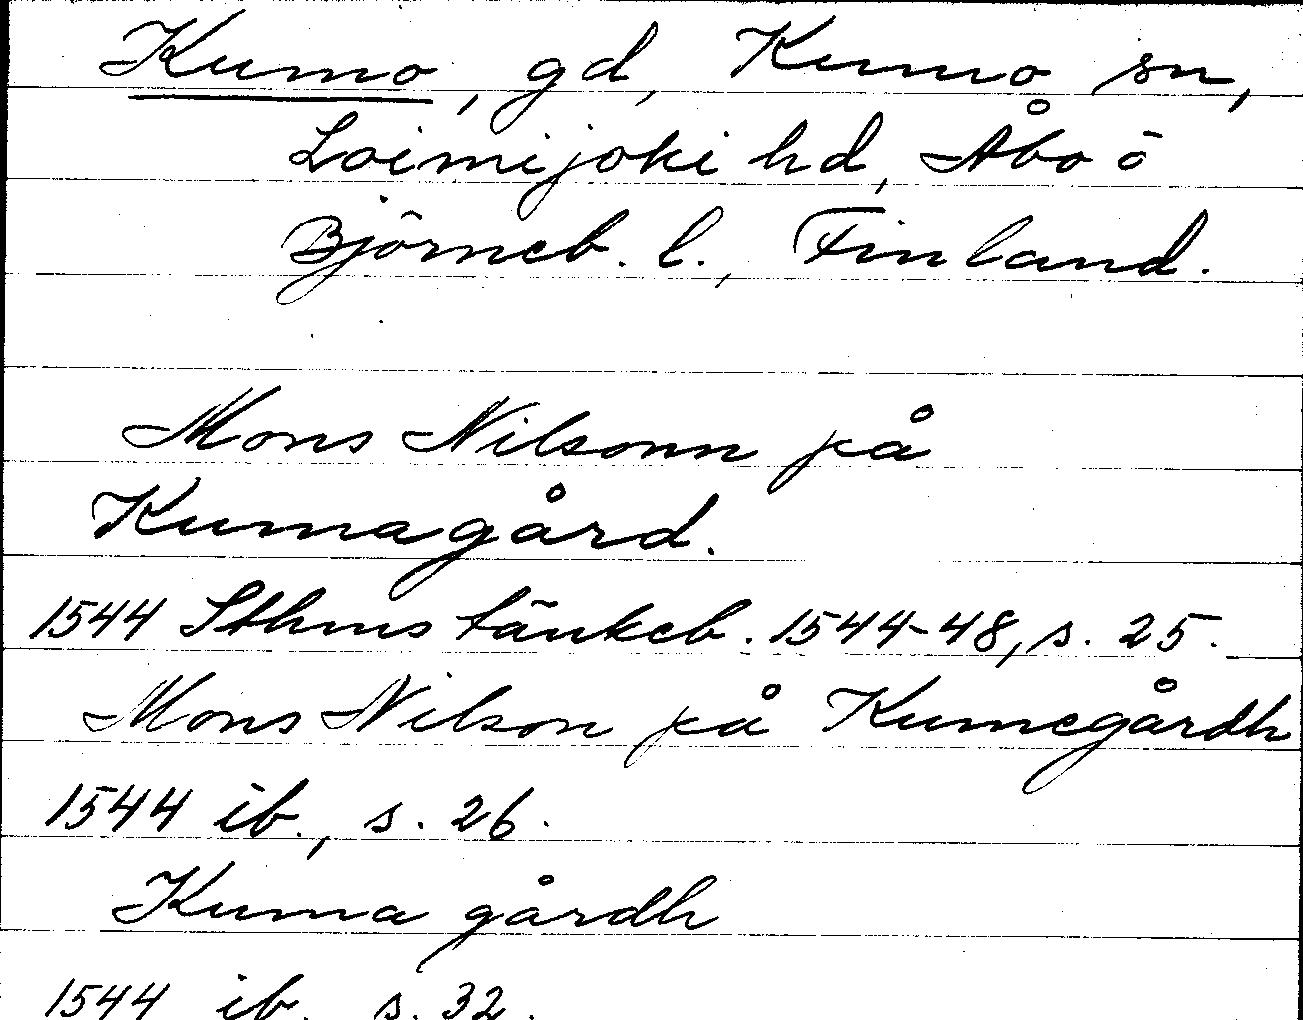 Kumo, gd, Kumo sn,
Loimijoki hd, Åbo o
Björneb. l., Finland.
Mons Nilsonn på
Kumagård.
1544 Sthms tänkeb. 1544-48, s. 25.
Mons Nilson på Kumegårdh
1544 ib., s. 26.
Kuma gårdh
1544 ib. s. 32.